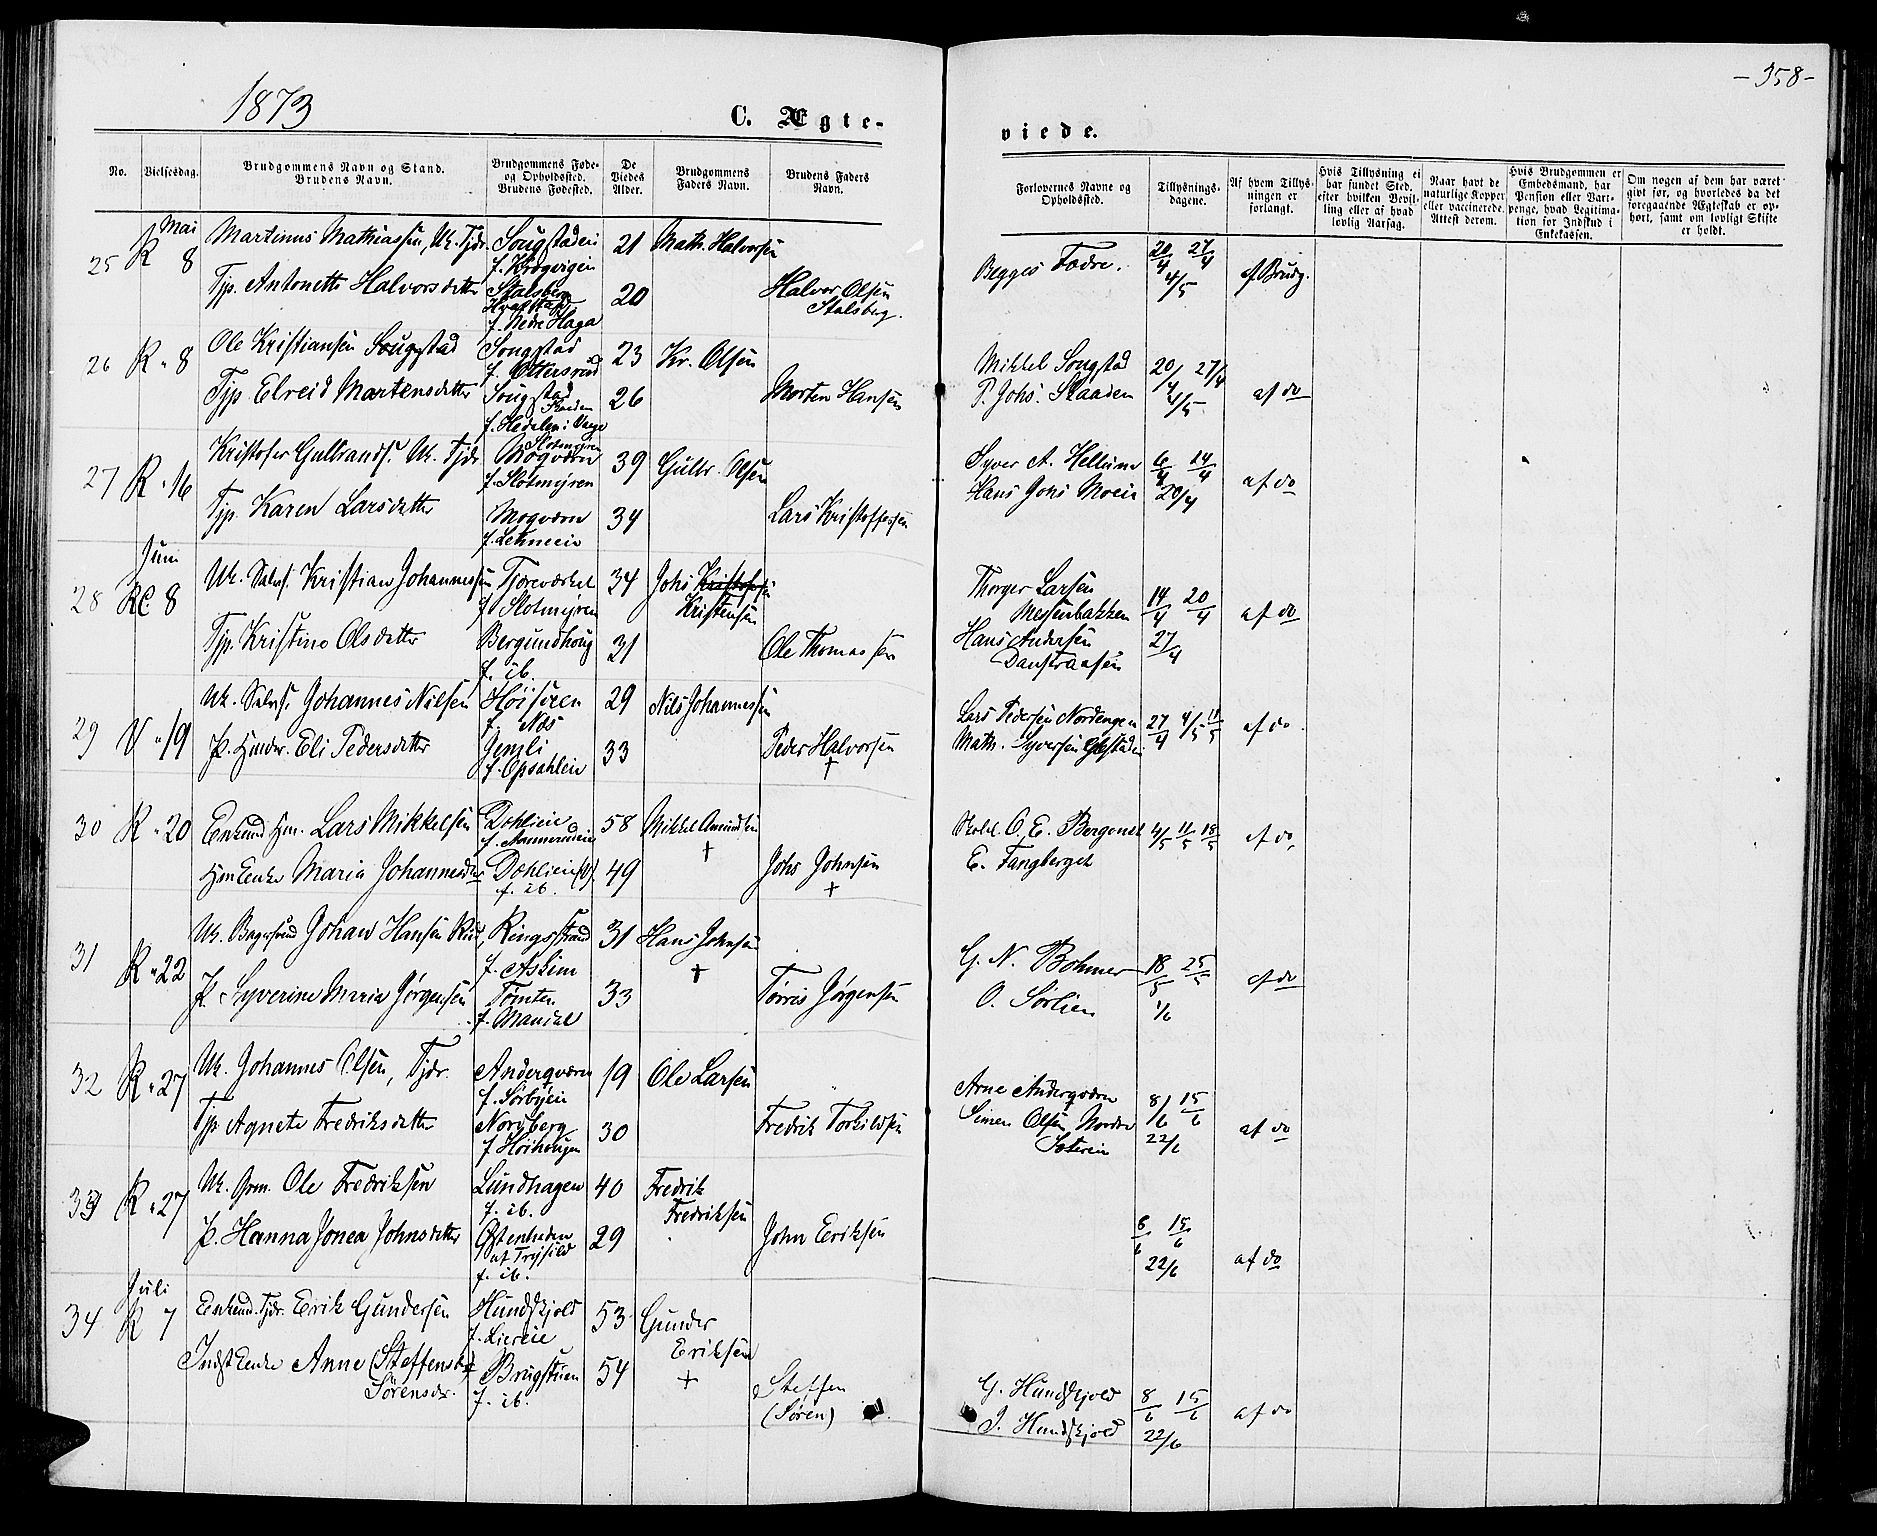 1873
C. Ægte-
viede.
- 358 -
No.
Vielsesdag.
Brudgommens Navn og Stand.
Brudens Navn.
Brudgommens Føde-
og Opholdssted.
Brudens Fødested.
De
Viedes
Alder.
Brudgommens
Faders Navn.
Brudens Faders
Navn.
Forlovernes Navne og
Opholdssted.
Tillysnings-
dagene.
Af hvem Tillys-
ningen er
forlangt.
Hvis Tillysning ei
har fundet Sted,
efter hvilken Bevil-
ling eller af hvad
lovlig Aarsag.
Naar havt de
naturlige Kopper
eller vaccinerede.
Attest derom.
Hvis Brudgommen er
Embedsmand, har
Pension eller Vart-
penge, hvad Legitima-
tion for Indskud i
Enkekassen.
Om nogen af dem har været
givt før, og hvorledes da det
foregaaende Ægteskab er op-
hørt, samt om lovligt Skifte
er holdt.
Mai
25 R 8 Martinus Mathiassen, Uk. Tjdr. Sougstadei 21 Math. Halvorsen
f. Krogvigen
Tjp. Antonette Halvorsdatter Stalsberg 20 Halvor Olsen
Stalsberg.
f. Nedre Haga
Begges Fædre. 20/4 27/4 4/5 af Brudg.
26 R " 8 Ole Kristiansen Sougstad Sougstad 23 Kr. Olsen
f. Ottersrud
Tjp. Elreid Martensdatter Sougstad 26 Morten Hansen
f. Hedalen i Vaage
Mikkel Sougstad 20/4 27/4
P. Johs. Skaaden 4/5 af do
27 R " 16 Kristofer Gulbrands. Uk. Tjdr. Mogværn 39 Gulbr. Olsen
f. Slotmyren
Tjp. Karen Larsdatter Mogværn 34 Lars Kristoffersen
Syver A. Hellum 6/4 14/4
Hans Johs Moein 20/4 af do
Juni
28 R 8 Uk. Kristian Johannessen 34 Johs Kristofersen
f. Slotmyren Kristensen
Tjp. Kristine Olsdatter Bergundhoug 31 Ole Thomassen
f. ib.
Thorger Larsen
Messenbakken 14/4 20/4 af do
Hans Andersen 27/4
29 V " 19 Uk. Johannes Nilsen Høisveen 29 Nils Johannessen
f. Næs
P. Eli Pedersdatter Gjemli 33 Peder Halvorsen
f. Opsahleie +
Lars Pedersen Nordengen 27/4 4/5 11/5 af do
Math. Syversen
30 R " 20 Enkemd. Hm. Lars Mikkelsen Dohlieie 58 Mikkel Amundsen
+
Hm Enke Maria Johannesd. Dohlieie 49 Johs Johnsen
f. ib. +
O. E. Bergeneb 4/5 11/5 18/5 af do
E. Fangberget
31 R " 22 Uk. Bagersvend Johan Hansen Rud, Ringsstrand 31 Hans Johnsen
f. Askim +
P. Syverine Marie Jørgensen Tomten 33 Tørris Jørgensen
f. Mandal
G. N. Bohmer 18/5 25/5
O. Sörlien 1/6 af do
32 R " 27 Uk. Johannes Olsen, Tjdr. Anderqværn 19 Ole Larsen
f. Sørbyeie
Tjp. Agnete Fredriksdatter Norsberg 30 Fredrik Torkildsen
f. Høihougen
Arne Anderqværn 8/6 15/6
Simen Olsen Nordre 22/6 af do
33 R " 27 Uk. Grm. Ole Fredriksen Lundhagen 40 Fredrik
f. ib. Fredriksen
P. Hanna Jonea Johnsdatter Østenheden 29 John Eriksen
ut Trysild
f. ib.
8/6 15/6
22/6 af do
Juli
34 R 7 Enkemd. Tjdr. Erik Gundersen Hundskjold 53 Gunder
f. Liereie Eriksen
+
Indst Enke Anne (Steffensd. Brugstuen 54 Steffen
Sörensdr. f. ib. (Søren)
G. Hundskjold 8/6 15/6
J. Hundskjold 22/6 af do